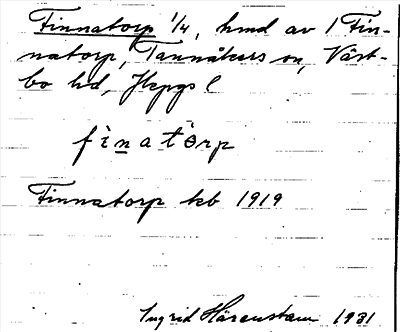 Finnatorp 1/4, hmd av 1 Fin-
natorp, Tannåkers sn, Väst-
bo hd, Jkpgs l
fìnatórp
Finnatorp kb 1919
Ingrid Härenstam 1931